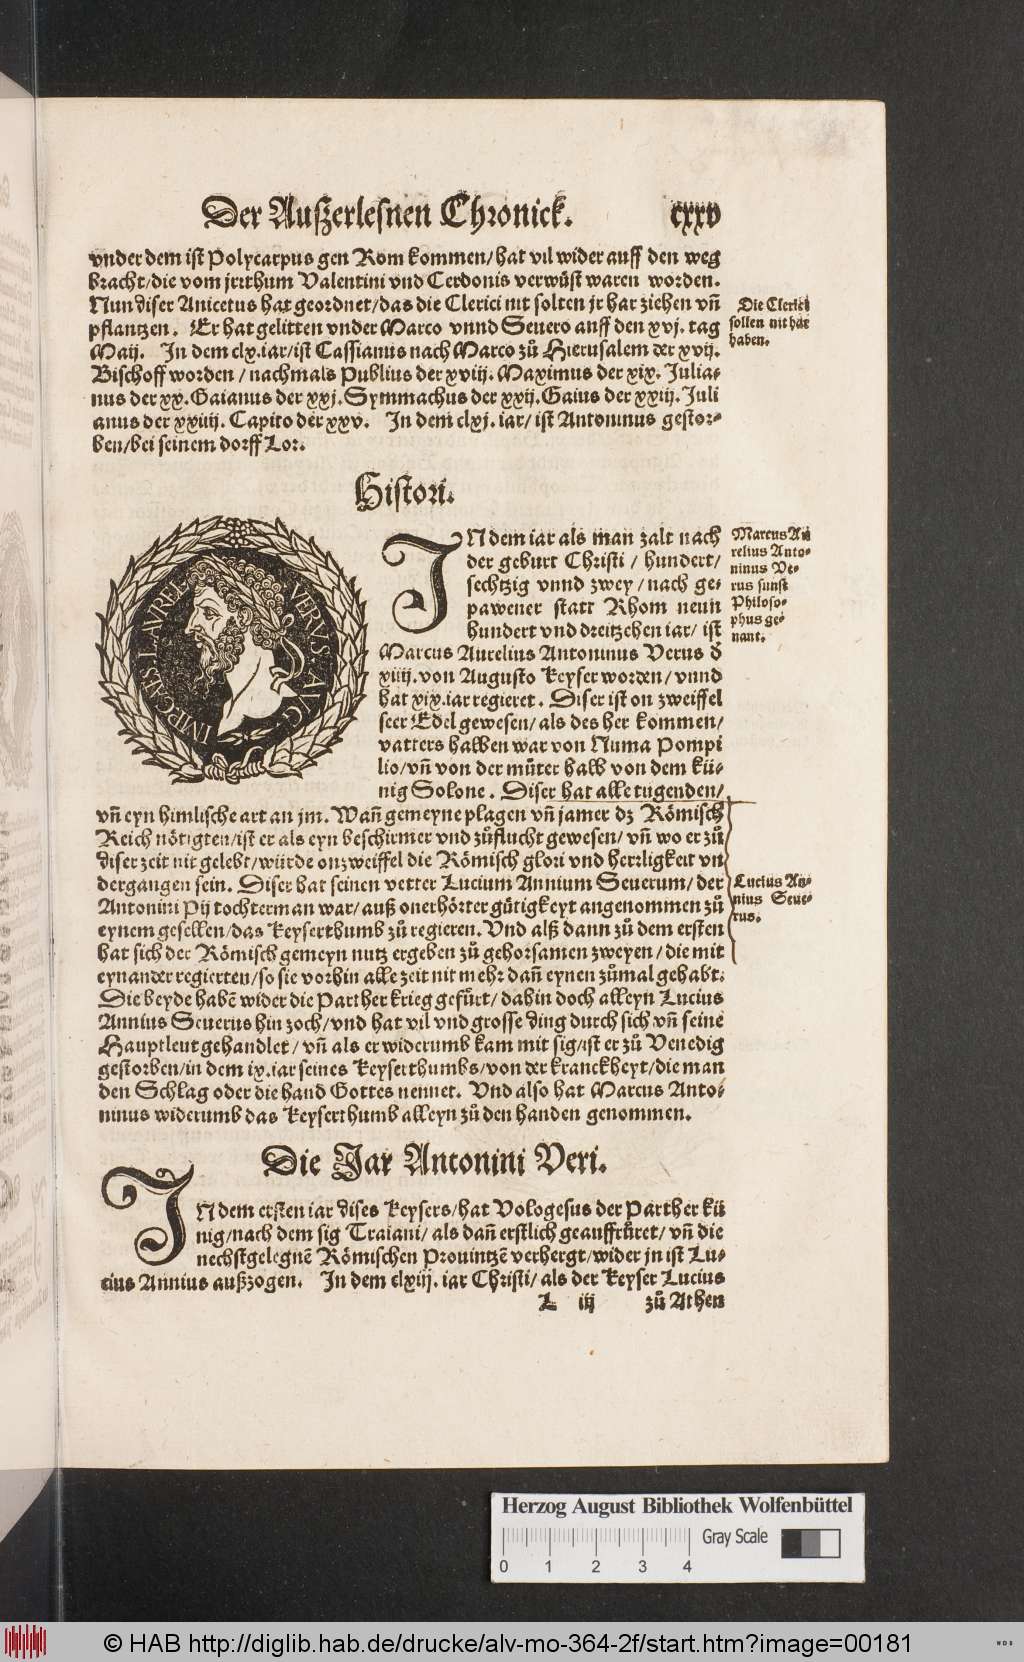 Der Außerlesnen Chronick. cxxv
vnder dem ist Polycarpus gen Rom kommen/ hat vil wider auff den weg
bracht/die vom jrrthum Valentini vnd Cerdonis verwüst waren worden.
Nun diser Anicetus hat geordnet/das die Clerici nit solten jr har ziehen vñ
pflantzen. Er hat gelitten vnder Marco vnnd Seuero auff den xvj. tag
Maij. In dem clx.iar/ist Cassianus nach Marco zů Hierusalem der xvij.
Bischoff worden / nachmals Publius der xviij. Maximus der xix. Julia-
nus der xx. Gaianus der xxj. Symmachus der xxij. Gaius der xxiij. Juli
anus der xxiiij. Capito der xxv. In dem clxj. iar/ ist Antoninus gestor-
ben/bei seinem dorff Lor.
Die Clerici
sollen nit har
haben.
Histori.
IMP. CAES. L. AVREL. VERVS. AVG.
IN dem iar als man zalt nach
der geburt Christi / hundert/
sechtzig vnnd zwey / nach ge-
pawener statt Rhom neun
hundert vnd dreitzehen iar/ ist
Marcus Aurelius Antoninus Verus d̕
xiiij. von Augusto Keyser worden/ vnnd
hat xix.iar regieret. Diser ist on zweiffel
seer Edel gewesen/ als des her kommen/
vatters halben war von Numa Pompi
lio/vñ von der můter halb von dem kü-
nig Solone. Diser hat alle tugenden/
vñ eyn himlische art an jm. Wañ gemeyne plagen vñ jamer dz Römisch
Reich nötigten/ist er als eyn beschirmer vnd zůflucht gewesen/ vñ wo er zů
diser zeit nit gelebt/würde onzweiffel die Römisch glori vnd herrligkeit vn
dergangen sein. Diser hat seinen vetter Lucium Annium Seuerum/ der
Antonini Pij tochterman war/ auß onerhörter gütigkeyt angenommen zů
eynem gesellen/das Keyserthumb zů regieren. Vnd alß dann zů dem ersten
hat sich der Römisch gemeyn nutz ergeben zů gehorsamen zweyen / die mit
eynander regierten/so sie vorhin alle zeit nit mehr dañ eynen zůmal gehabt.
Die beyde habē wider die Parther krieg gefürt/ dahin doch alleyn Lucius
Annius Seuerus hin zoch/vnd hat vil vnd grosse ding durch sich vñ seine
Hauptleut gehandlet / vñ als er widerumb kam mit sig/ist er zů Venedig
gestorben/in dem ix.iar seines Keyserthumbs/von der kranckheyt/die man
den Schlag oder die hand Gottes nennet. Vnd also hat Marcus Anto-
ninus widerumb das Keyserthumb alleyn zů den handen genommen.
Marcus Au
relius Anto-
ninus Ve-
rus sunst
Philoso-
phus ge-
nant.
Lucius An-
nius Seue-
rus.
Die Jar Antonini Veri.
IN dem ersten iar dises Keysers/hat Vologesus der Parther kü
nig/nach dem sig Traiani/ als dañ erstlich geauffrůret/ vñ die
nechstgelegnē Römischen Prouintzē verhergt/wider jn ist Lu-
cius Annius außzogen. In dem clxiij. iar Christi/ als der Keyser Lucius
L iij zů Athen
Herzog August Bibliothek Wolfenbüttel
Gray Scale
0 1 2 3 4
© HAB http://diglib.hab.de/drucke/alv-mo-364-2f/start.htm?image=00181